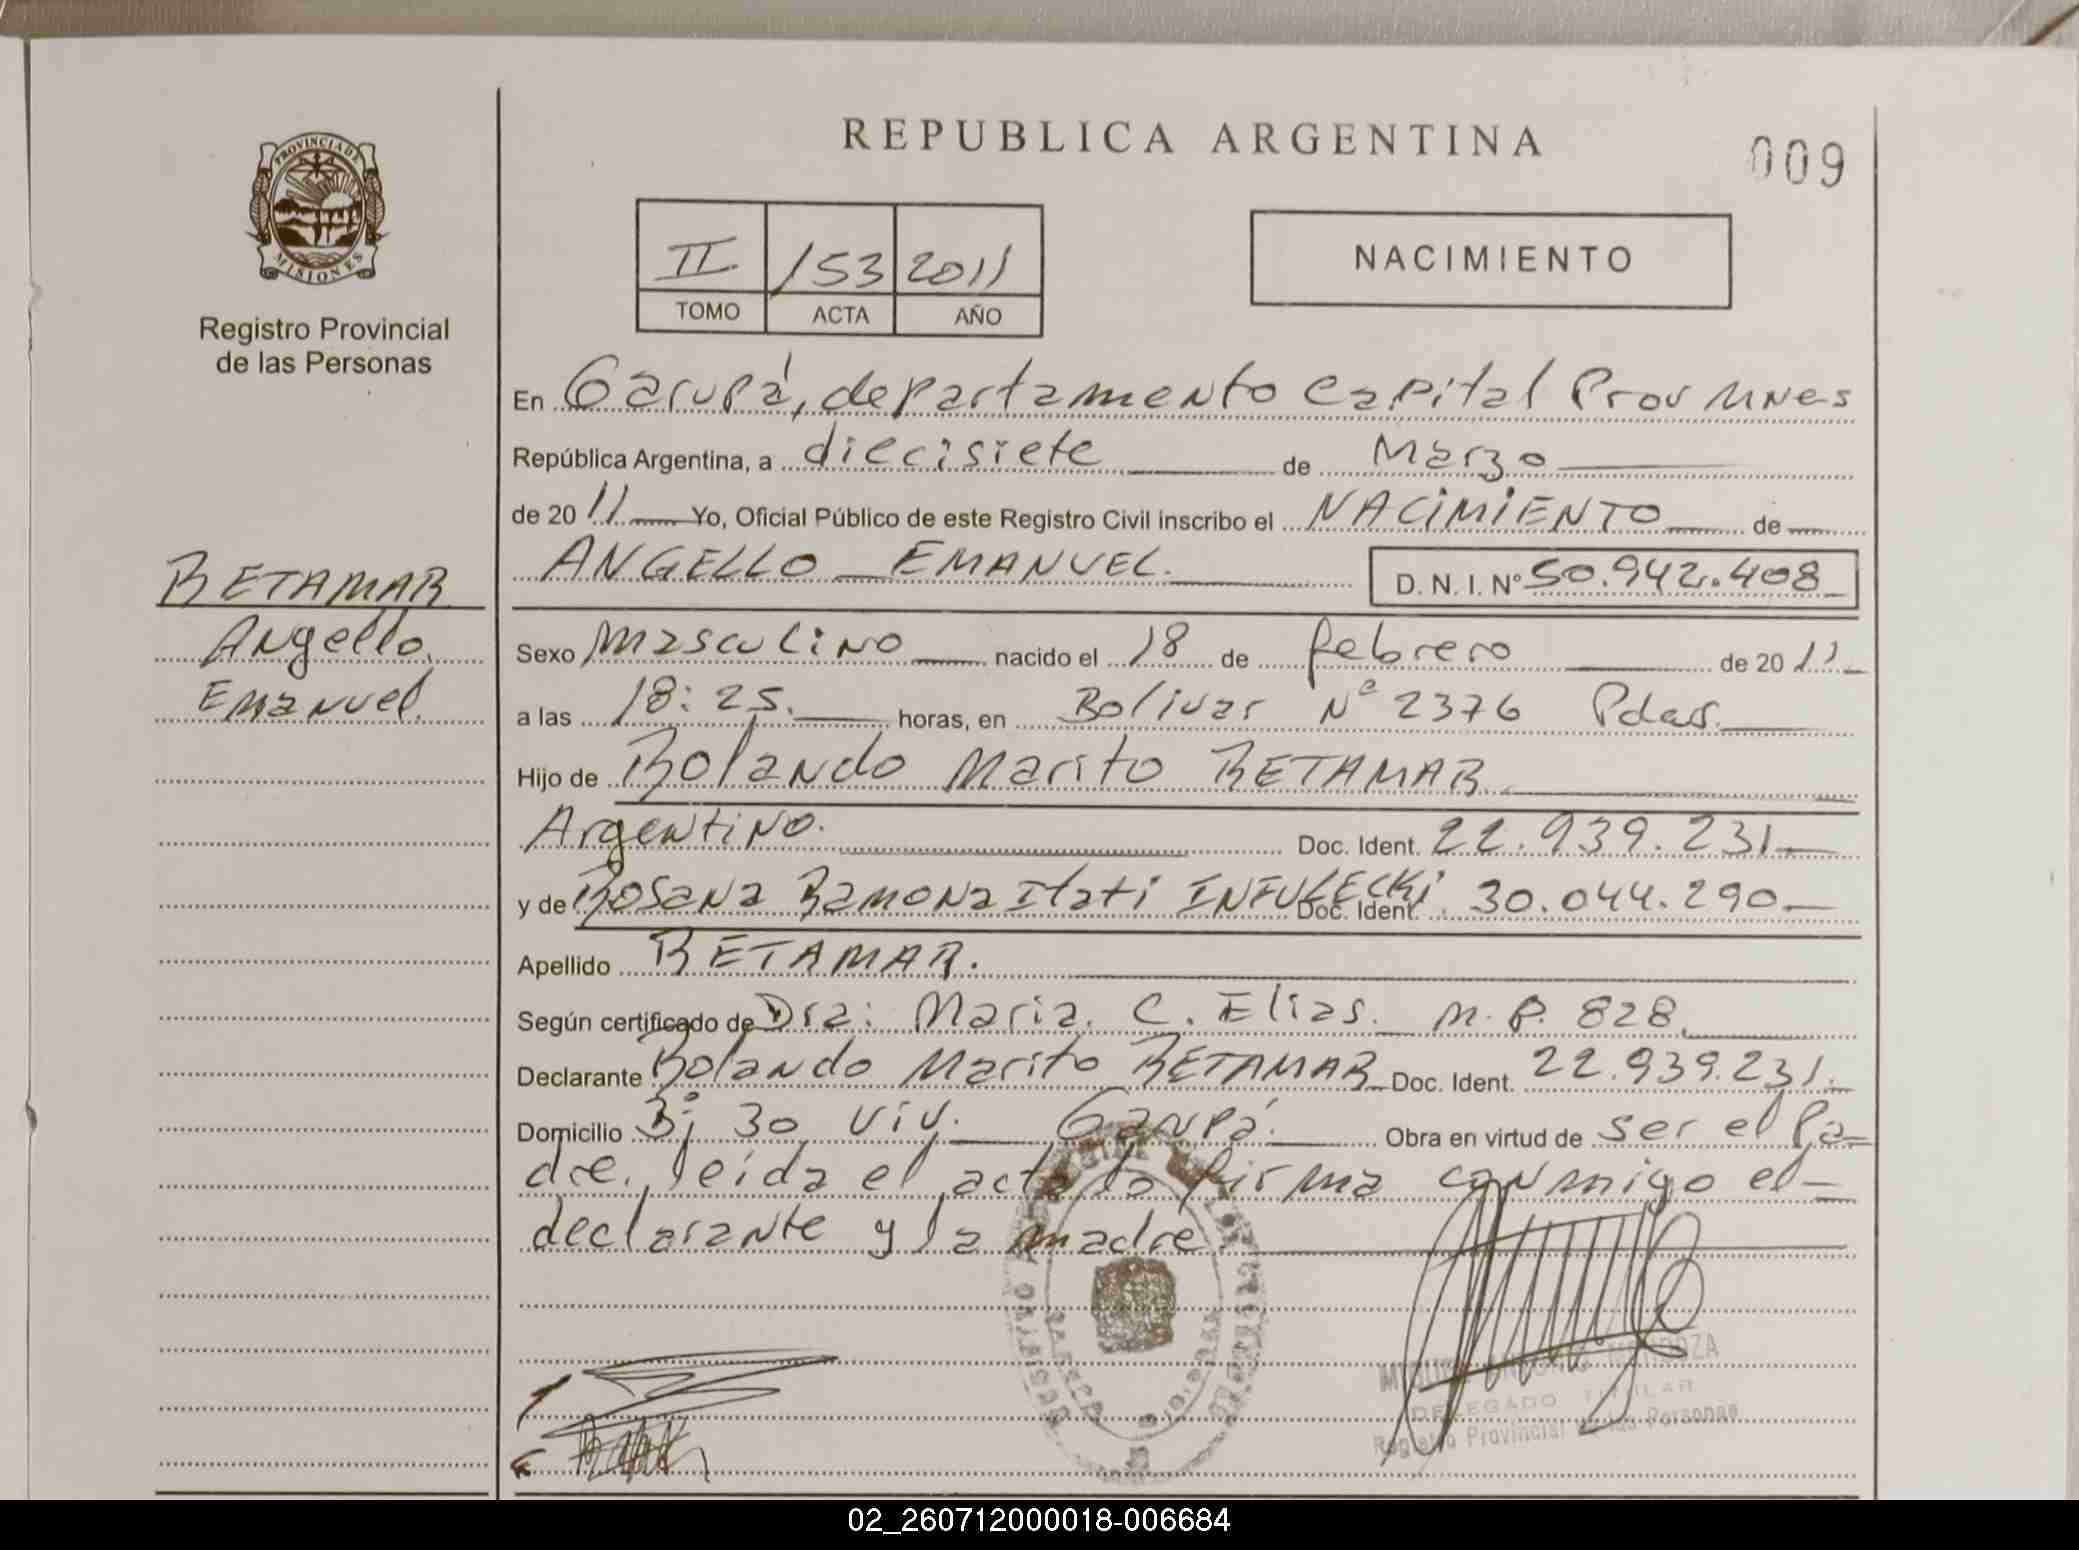 REPUBLICA ARGENTINA
009
PROVINCIA DE
MISIONES
Registro Provincial
de las Personas
II 153 2011
TOMO ACTA AÑO
NACIMIENTO
En Garupá, departamento Capital Prov Mnes
República Argentina, a diecisiete de Marzo
de 2011 Yo, Oficial Público de este Registro Civil inscribo el NACIMIENTO de
ANGELLO EMANUEL. D. N. I. Nº 50.942.408
BETAMAR
Angello
Emanuel.
Sexo Masculino nacido el 18 de febrero de 2011
a las 18:25. horas, en Bolivar Nº 2376 Pdas.
Hijo de Rolando Marito BETAMAR
Argentino. Doc. Ident. 22.939.231
y de Rosana Ramona Itati INFULECKI Doc. Ident. 30.044.290
Apellido BETAMAR.
Según certificado de Dra: Maria. C. Elias. M.P. 828.
Declarante Rolando Marito BETAMAR Doc. Ident. 22.939.231.
Domicilio Bº 30 viv. Garupá. Obra en virtud de ser el Pa-
dre. leida el acta la firma conmigo el
declarante y la madre.
MENDOZA
DELEGADO TITULAR
Registro Provincial de las Personas
02_260712000018-006684